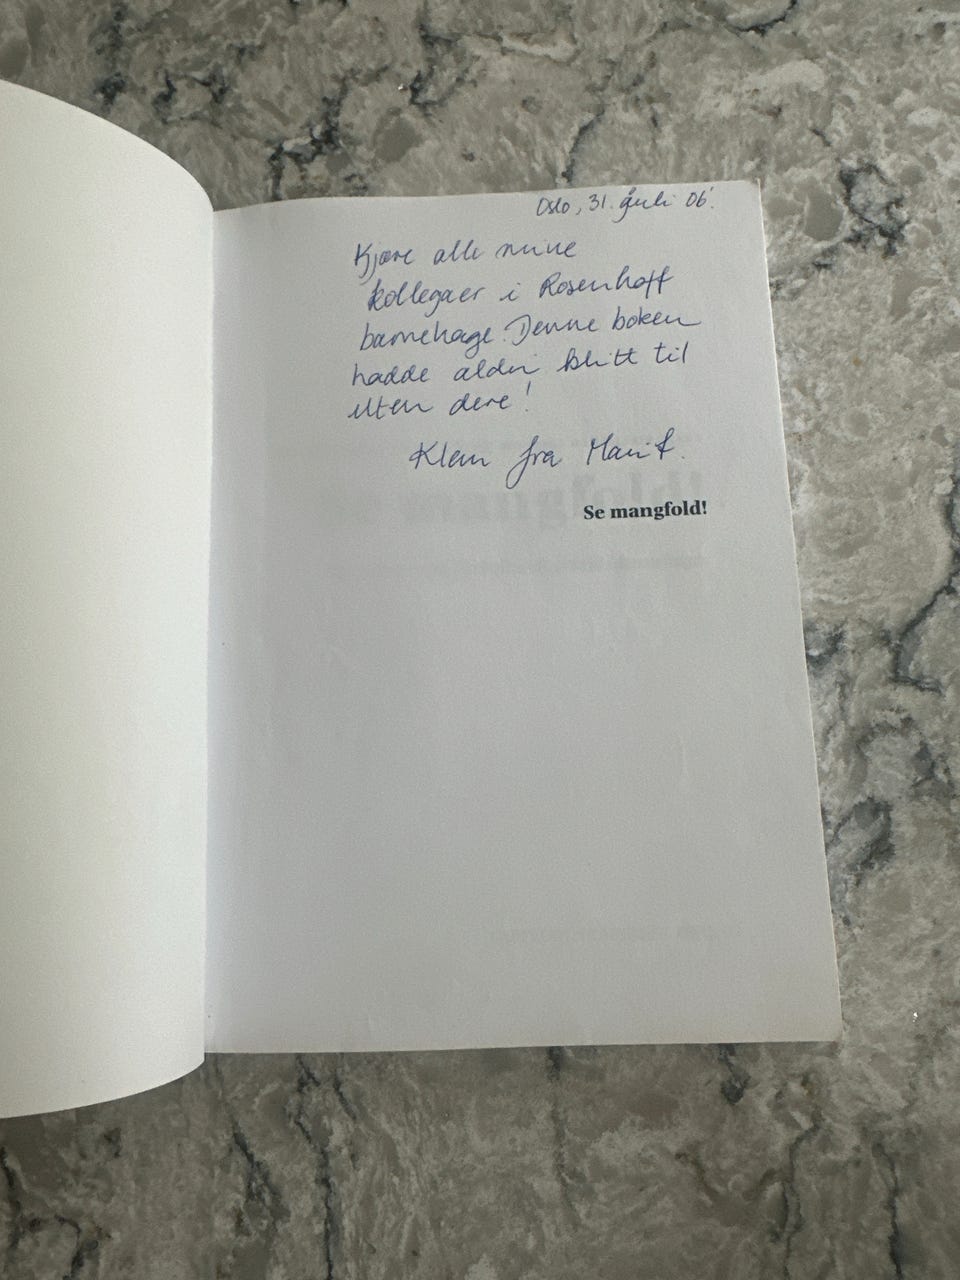 Oslo, 31. juli 06'.
Kjære alle mine
kollegaer i Rosenhoff
barnehage. Denne boken
hadde aldri blitt til
uten dere!
Klem fra Marit.
Se mangfold!